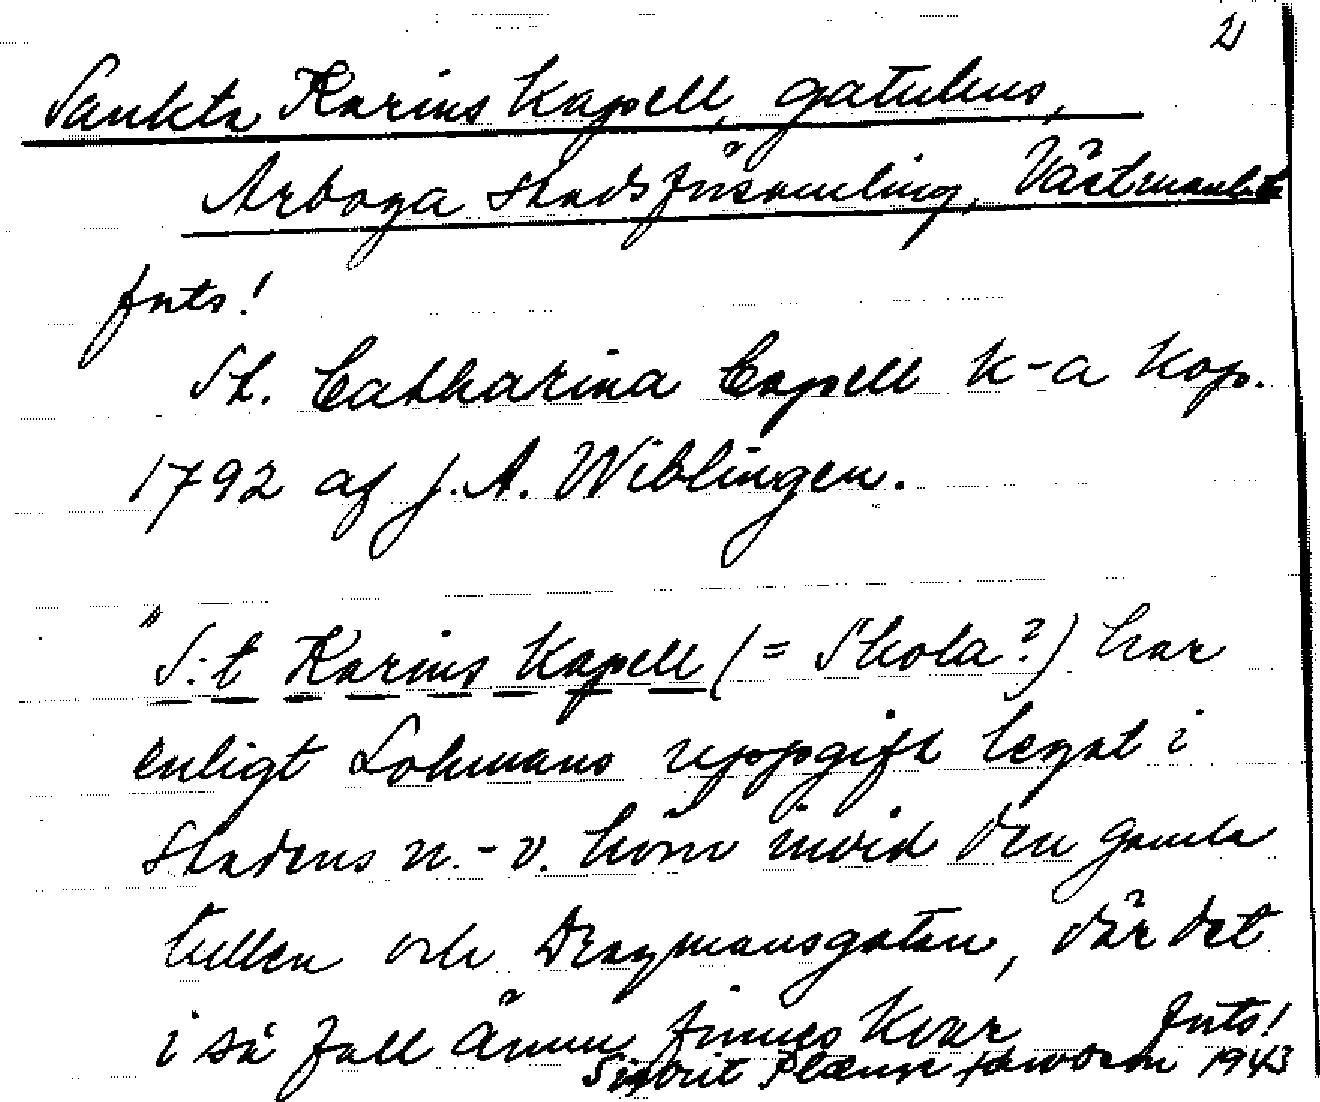 2
Sankta Karins Kapell, gatuhus,
Arboga stadsförsamling, Västmanl.
forts!
St. Catharina Capell k-a kop.
1792 af J. A. Wiblingen.
"S:t Karins Kapell (= Skola?) har
enligt Lohmans uppgift legat i
stadens n.-v. hörn invid den gamla
tullen och Dragmansgatan, där det
i så fall ännu finnes kvar forts!
Sigbrit Plænge Jacobson 1943